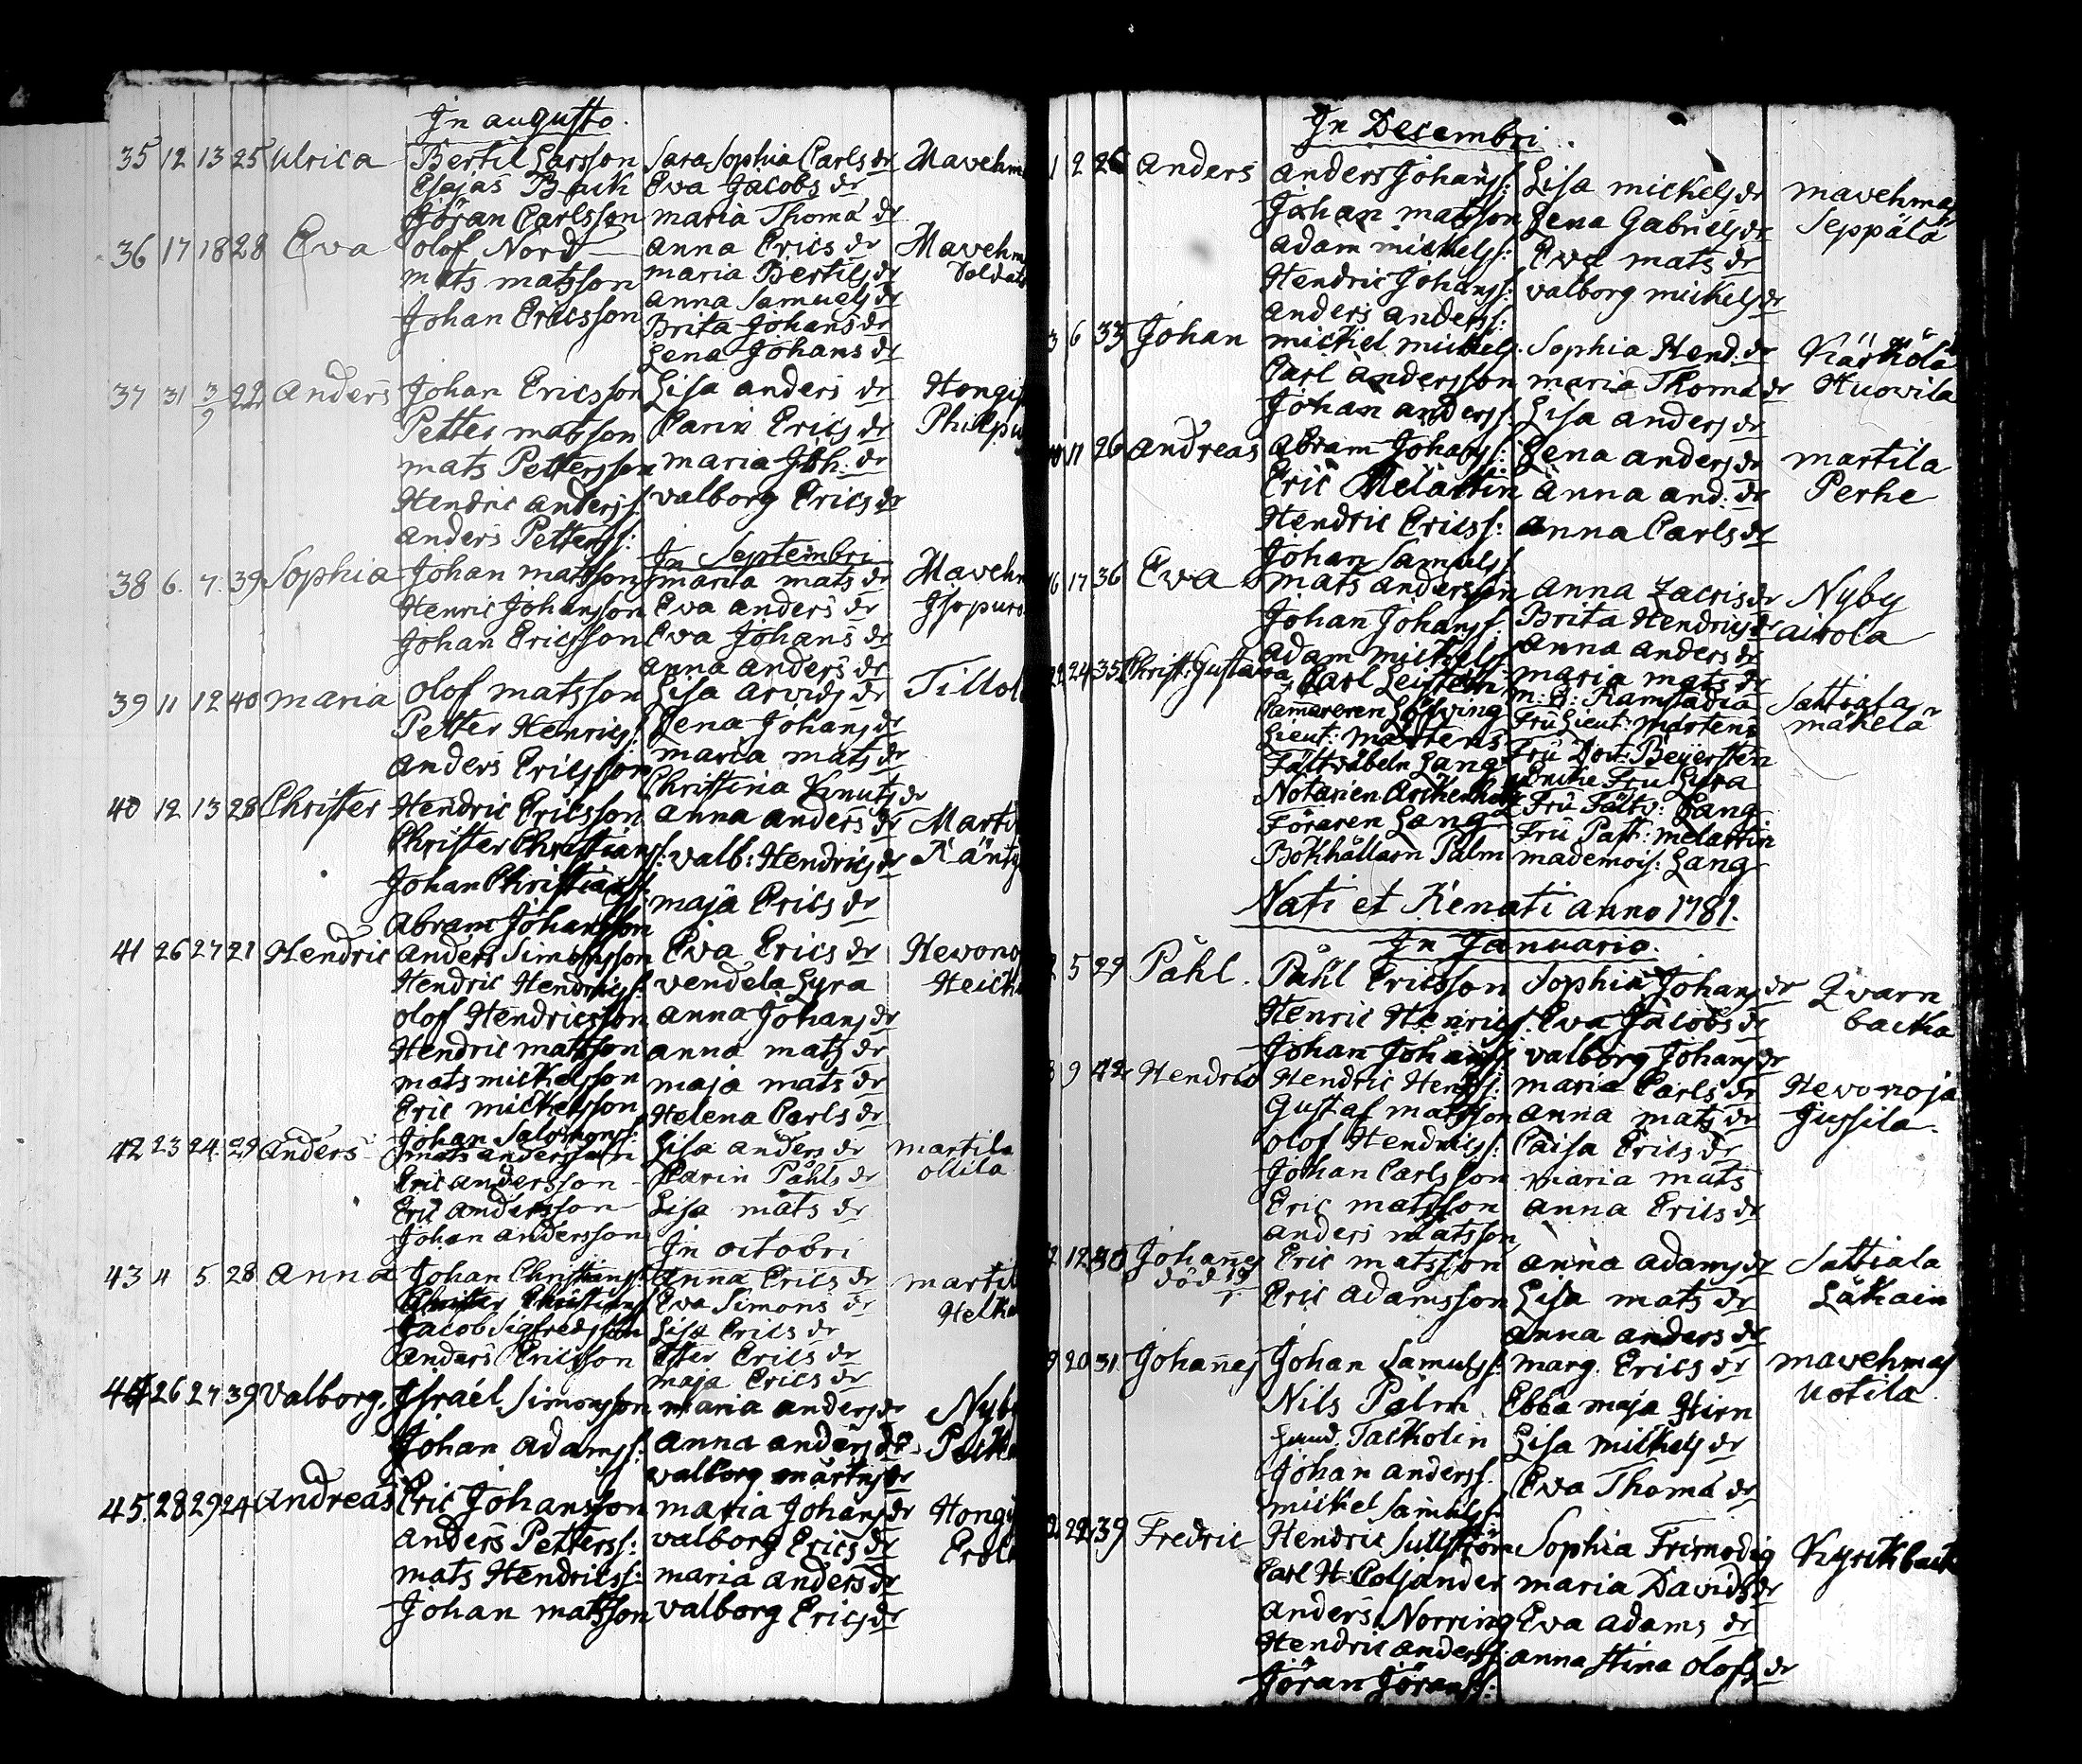 In augusto.
35 12 13 25 Ulrica Bertil Larsson Sara Sophia Carls dr Mavehm
Esajas Back Eva Jacobs dr
Jöran Carlsson maria Thoma dr
36 17 18 28 Eva olof Nord anna Erics dr Mavehm
mats matsson maria Bertils dr Soldat
anna Samuels dr
Johan Ericsson Brita Johans dr
Lena Johans dr
37 31 3/9 22 Anders Johan Ericsson Lisa anders dr Hongis
Petter matsson Carin Erics dr Philpu
mats Pettersson maria Joh: dr
Hendric anderss: valborg Erics dr
anders Petterss:
In Septembri
38 6. 7. 39 Sophia Johan matsson maria mats dr Mavehm
Henric Johansson Eva anders dr Isopuro
Johan Ericsson Eva Johans dr
anna anders dr
39 11 12 40 maria olof matsson Lisa arvids dr Tillol
Petter Henricss: Lena Johans dr
anders Ericsson maria mats dr
Christina Knuts dr
40 12 13 28 Christer Hendric Ericsson anna anders dr Marti
Christer Christianss: valb: Hendrics dr Känty
Johan Christianss: maja Erics dr
Abram Johansson
41 26 27 21 Hendric anders Simonsson Eva Erics dr Hevono
Hendric Hendricss: vendela Lyra Heick
olof Hendricsson anna Johans dr
Hendric matsson anna mats dr
mats mickelsson maja mats dr
Eric mickelsson Helena Carls dr
Johan Salomonss:
42 23 24. 29 Anders mats andersson Lisa anders dr martila
Eric andersson Carin Påhls dr ollila
Eric andersson Lisa mats dr
Johan andersson
In octobri
43 4 5. 28 Anna Johan Christianss: Anna Erics dr martil
Christer Christianss: Eva Simons dr Helk
Jacob Sigfredsson Lisa Erics dr
anders Ericsson Ester Erics dr
maja Erics dr
44 26 27 39 Valborg. Israel Simonsson maria anders dr Nyb
Johan Adamss: Anna anders dr
valborg mårtns dr
45. 28 29 24 Andreas Eric Johansson maria Johans dr Hongi
anders Petterss: valborg Erics dr Erol
mats Hendricss: maria anders dr
Johan matsson valborg Erics dr
In Decembri.
1 2 26 Anders anders Johanss: Lisa mickels dr mavehma
Johan matsson Lena Gabriels dr Seppälä
adam mickelss: Eva mats dr
Hendric Johanss: valborg mickels dr
anders anderss:
3 6 33 Johan mickel mickels: Sophia Hend. dr Kärkölä
Carl Andersson maria Thoma dr Huovila
Johan anderss. Lisa anders dr
10 11 26 Andreas Abram Johanss: Lena anders dr martila
Eric Melartin Anna and: dr Perhe
Hendric Ericss: anna Carls dr
Johan Samuelss
16 17 36 Eva mats andersson anna Zacris dr Nyby
Johan Johanss: Brita Hendrics dr airola
Adam mickelss: anna anders dr
maria mats dr
22 24 35 Christ: Gustava Carl Leistén m: E: Ramstadia Sattiala
Camereren Löfving Fru Lieut: Martens mäkelä
Lieut: Martens Fru Doct: Beijersten
Fältväbeln Lang Enke Fru Lyra
Notarien Arckenholtz Fru Fältv: Lang
Föraren Lang Fru Past: melartin
Bokhållarn Palm mademois: Lang
Nati et Renati anno 1781.
In Januario.
2 5 29 Påhl. Påhl Ericsson Sophia Johans dr Qvarn
Henric Henricss. Eva Jacobs dr backa
Johan Johanss valborg Johans dr
8 9 42 Hendric Hendric Henss: maria Carls dr Hevonoja
Gustaf matsson anna mats dr Jussila.
olof Hendricss: Caisa Erics dr
Johan Carlsson maria mats
Eric matsson anna Erics dr
anders matsson
12 30 Johannes Eric matsson anna adams dr Sattiala
död Eric Adamsson Lisa mats dr Läkain
anna anders dr
9 20 31. Johannes Johan Samuelss: marg. Erics dr mavehmas
Nils Palm Ebba maja Hirn Uotila.
Tackolin Lisa mickels dr
Johan anderss. Eva Thoma dr
mickel Samuelss:
22 39 Fredric Hendric Sullström Sophia Frimodig Kyrckback
Carl H: Coljander maria Davids dr
anders Norring Eva Adams dr
Hendric anderss: anna Stina olofs dr
Jöran Jöranss: